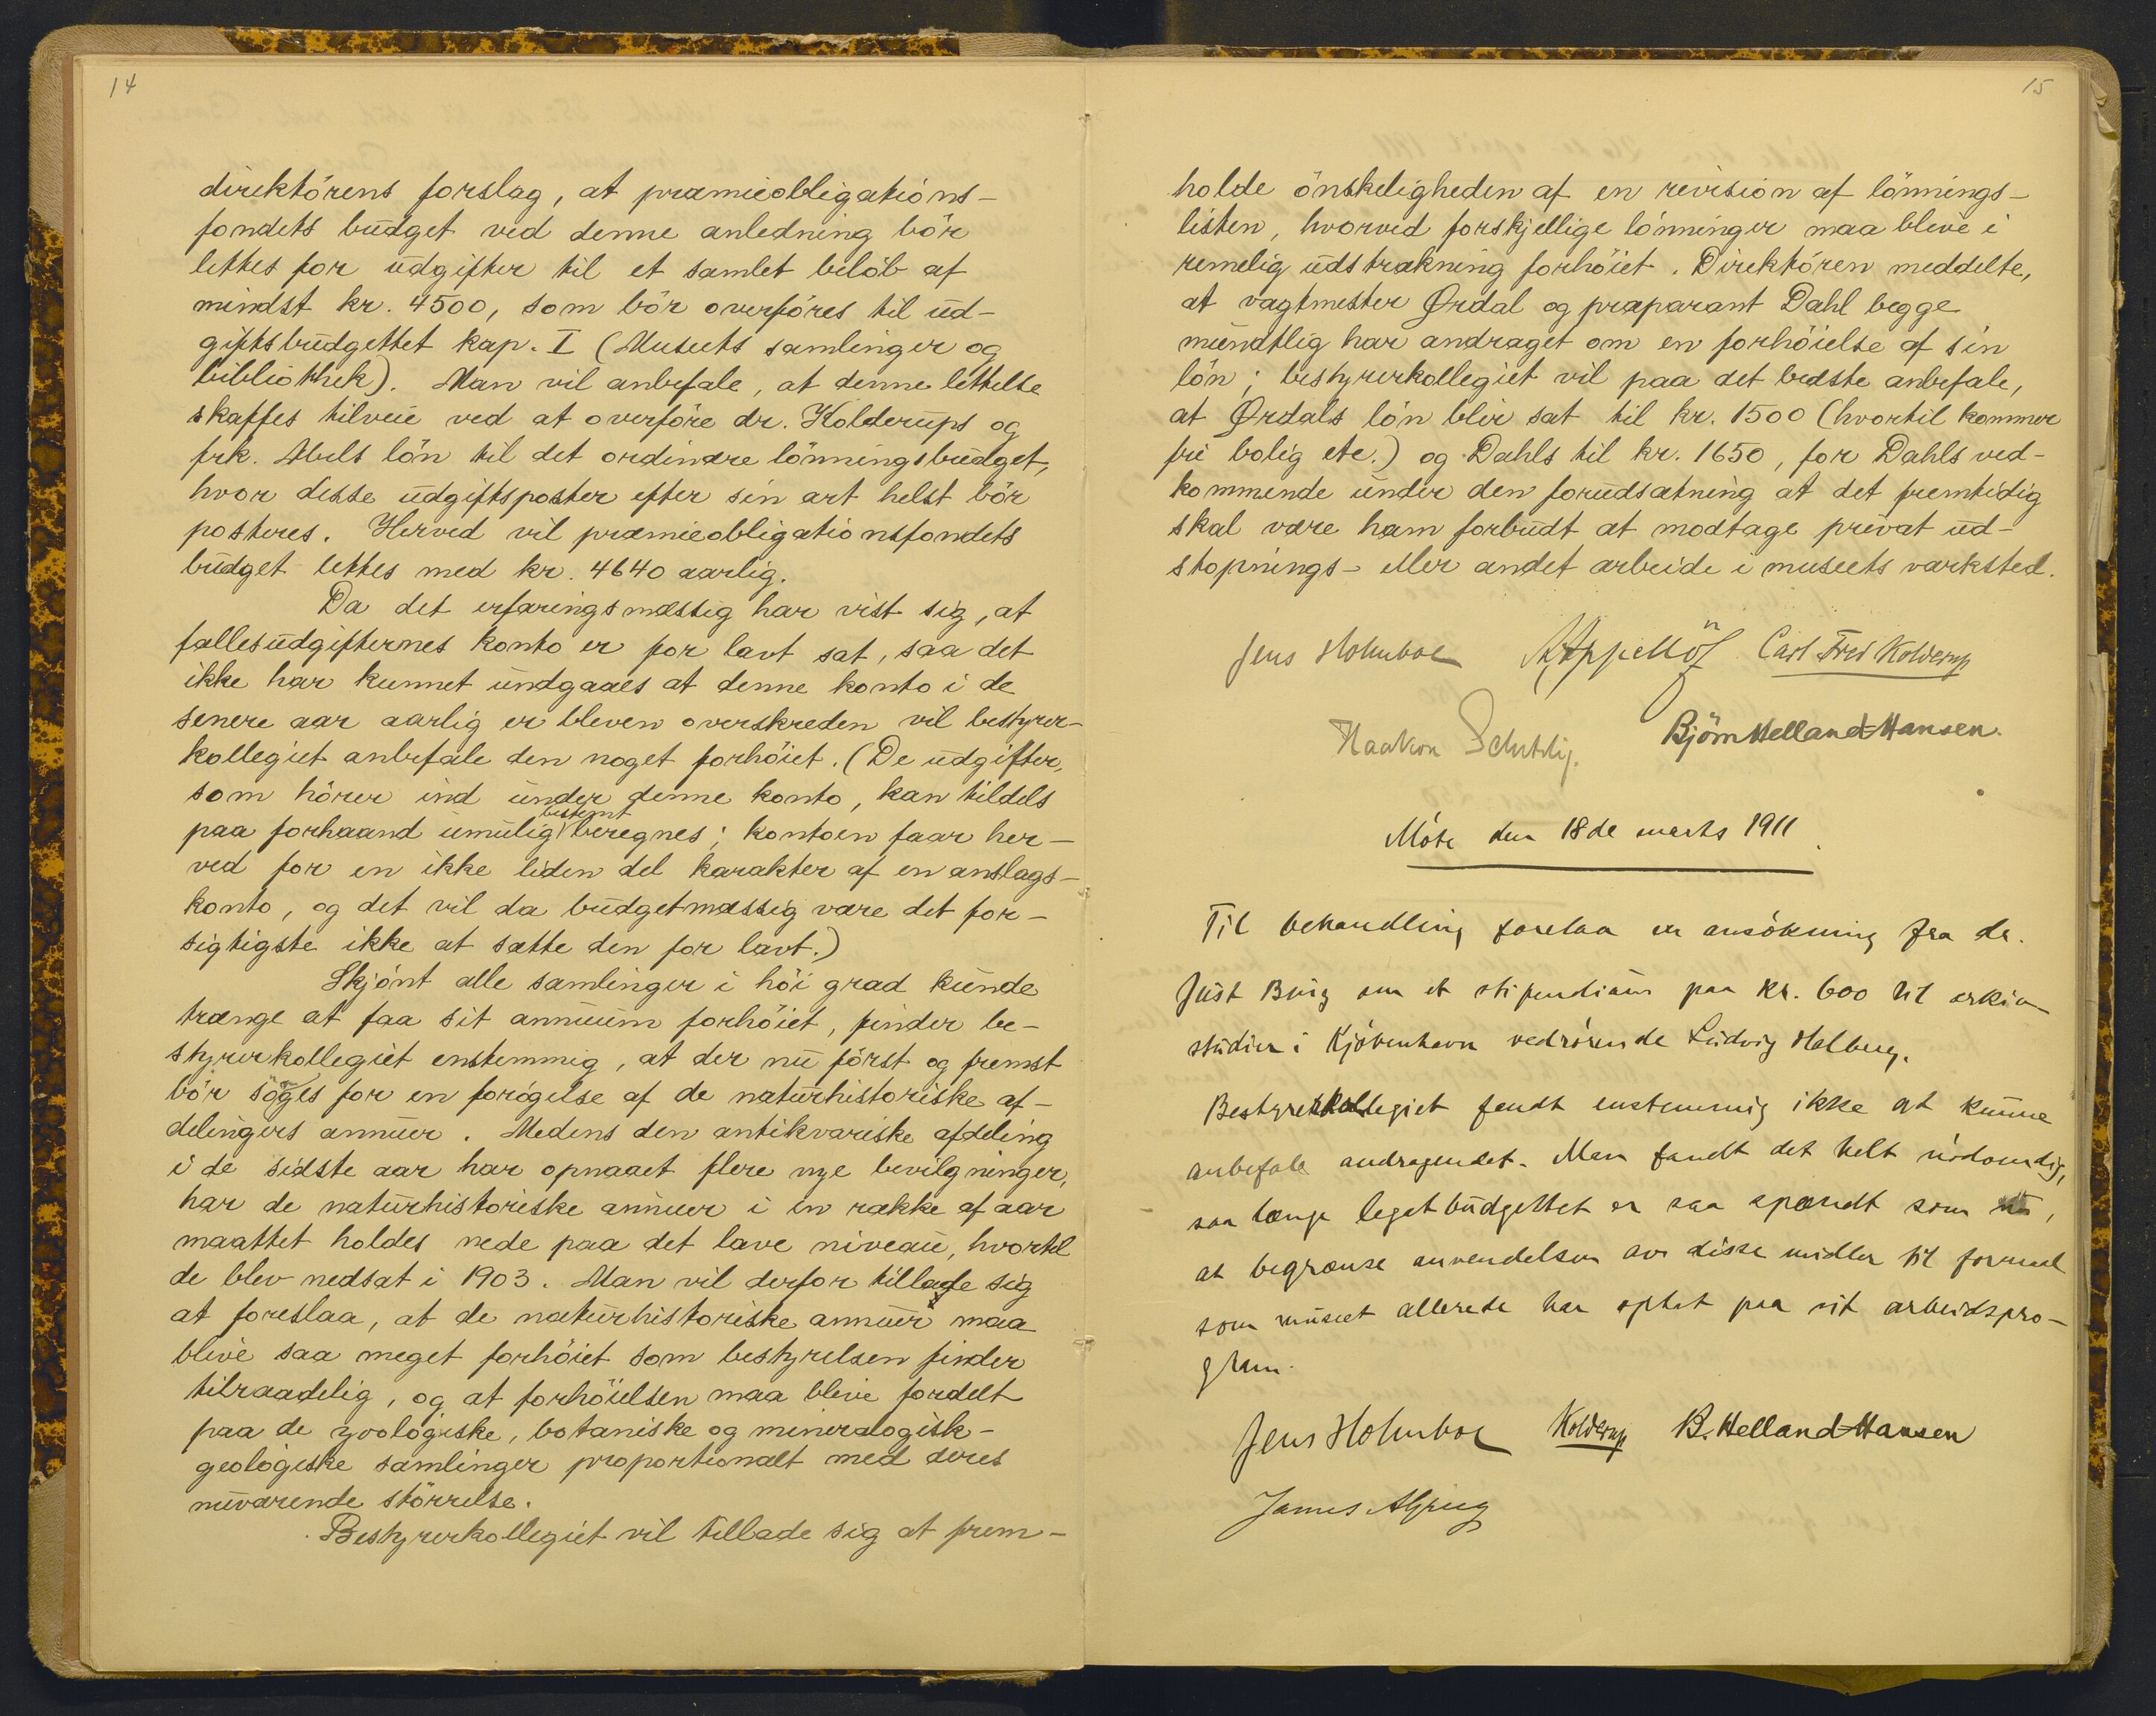 14
direktörens forslag, at præmieobligations-
fondets budget ved denne anledning bör
lettes for udgifter til et samlet belöb af
mindst kr. 4500, som bör overföres til ud-
giftsbudgettet kap. I (Museets samlinger og
bibliothek). Man vil anbefale, at denne lettelse
skaffes tilveie ved at overföre dr. Kolderups og
frk. Abels lön til det ordinære lönningsbudget,
hvor disse udgiftsposter efter sin art helst bör
posteres. Herved vil præmieobligationsfondets
budget lettes med kr. 4640 aarlig.
Da det erfaringsmæssig har vist sig, at
fællesudgifternes konto er for lavt sat, saa det
ikke har kunnet undgaaes at denne konto i de
senere aar aarlig er bleven overskreden vil bestyrer-
kollegiet anbefale den noget forhöiet. (De udgifter,
som hörer ind under denne konto, kan tildels
paa forhaand umulig bestemt beregnes; kontoen faar her-
ved for en ikke liden del karakter af en anslags-
konto, og det vil da budgetmæssig være det for-
sigtigste ikke at sætte den for lavt.)
Skjönt alle samlinger i höi grad kunde
trænge at faa sit annuum forhöiet, finder be-
styrerkollegiet enstemmig, at der nu först og fremst
bör söges for en forögelse af de naturhistoriske af-
delingers annuer. Medens den antikvariske afdeling
i de sidste aar har opnaaet flere nye bevilgninger,
har de naturhistoriske annuer i en række af aar
maattet holdes nede paa det lave niveau, hvortil
de blev nedsat i 1903. Man vil derfor tillade sig
at foreslaa, at de naturhistoriske annuer maa
blive saa meget forhöiet som bestyrelsen finder
tilraadelig, og at forhöielsen maa blive fordelt
paa de zoologiske, botaniske og mineralogisk-
geologiske samlinger proportionalt med deres
nuværende störrelse.
Bestyrerkollegiet vil tillade sig at frem-
15
holde önskeligheden af en revision af lönnings-
listen, hvorved forskjellige lönninger maa blive i
rimelig udstrækning forhöiet. Direktören meddelte,
at vagtmester Ørdal og præparant Dahl begge
mundtlig har andraget om en forhöielse af sin
lön; bestyrerkollegiet vil paa det bedste anbefale,
at Ørdals lön blir sat til kr. 1500 (hvortil kommer
fri bolig etc.) og Dahls til kr. 1650, for Dahls ved-
kommende under den forudsætning at det fremtidig
skal være ham forbudt at modtage privat ud-
stopnings- eller andet arbeide i museets værksted.
Jens Holmboe A Appellöf Carl Fred Kolderup
Haakon Schetelig. Björn Helland-Hansen.
Möte den 18de marts 1911.
Til behandling forelaa en ansökning fra dr.
Just Bing om et stipendium paa kr. 600 til arkiv
studier i Kjöbenhavn vedrörende Ludvig Holberg.
Bestyrerkollegiet fandt enstemmig ikke at kunne
anbefale andragendet. Man fandt det helt nödvendig,
saa længe legatbudgettet er saa spændt som nu,
at begrænse anvendelsen av disse midler til formaal
som museet allerede har optat paa sit arbeidspro-
gram.
Jens Holmboe Kolderup B. Helland-Hansen
James A Grieg